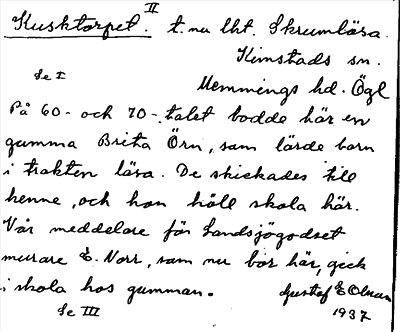 II
Kusktorpet. t. nu lht. Skrumlösa.
Kimstads sn.
Se I
Memmings hd. Ögl
På 60- och 70-talet bodde här en
gumma Brita Örn, som lärde barn
i trakten läsa. De skickades till
henne, och hon höll skola här.
Vår meddelare för Landsjögodset
murare E. Norr, som nu bor här, gick
i skola hos gumman. Gustaf E Olsson
Se III 1937